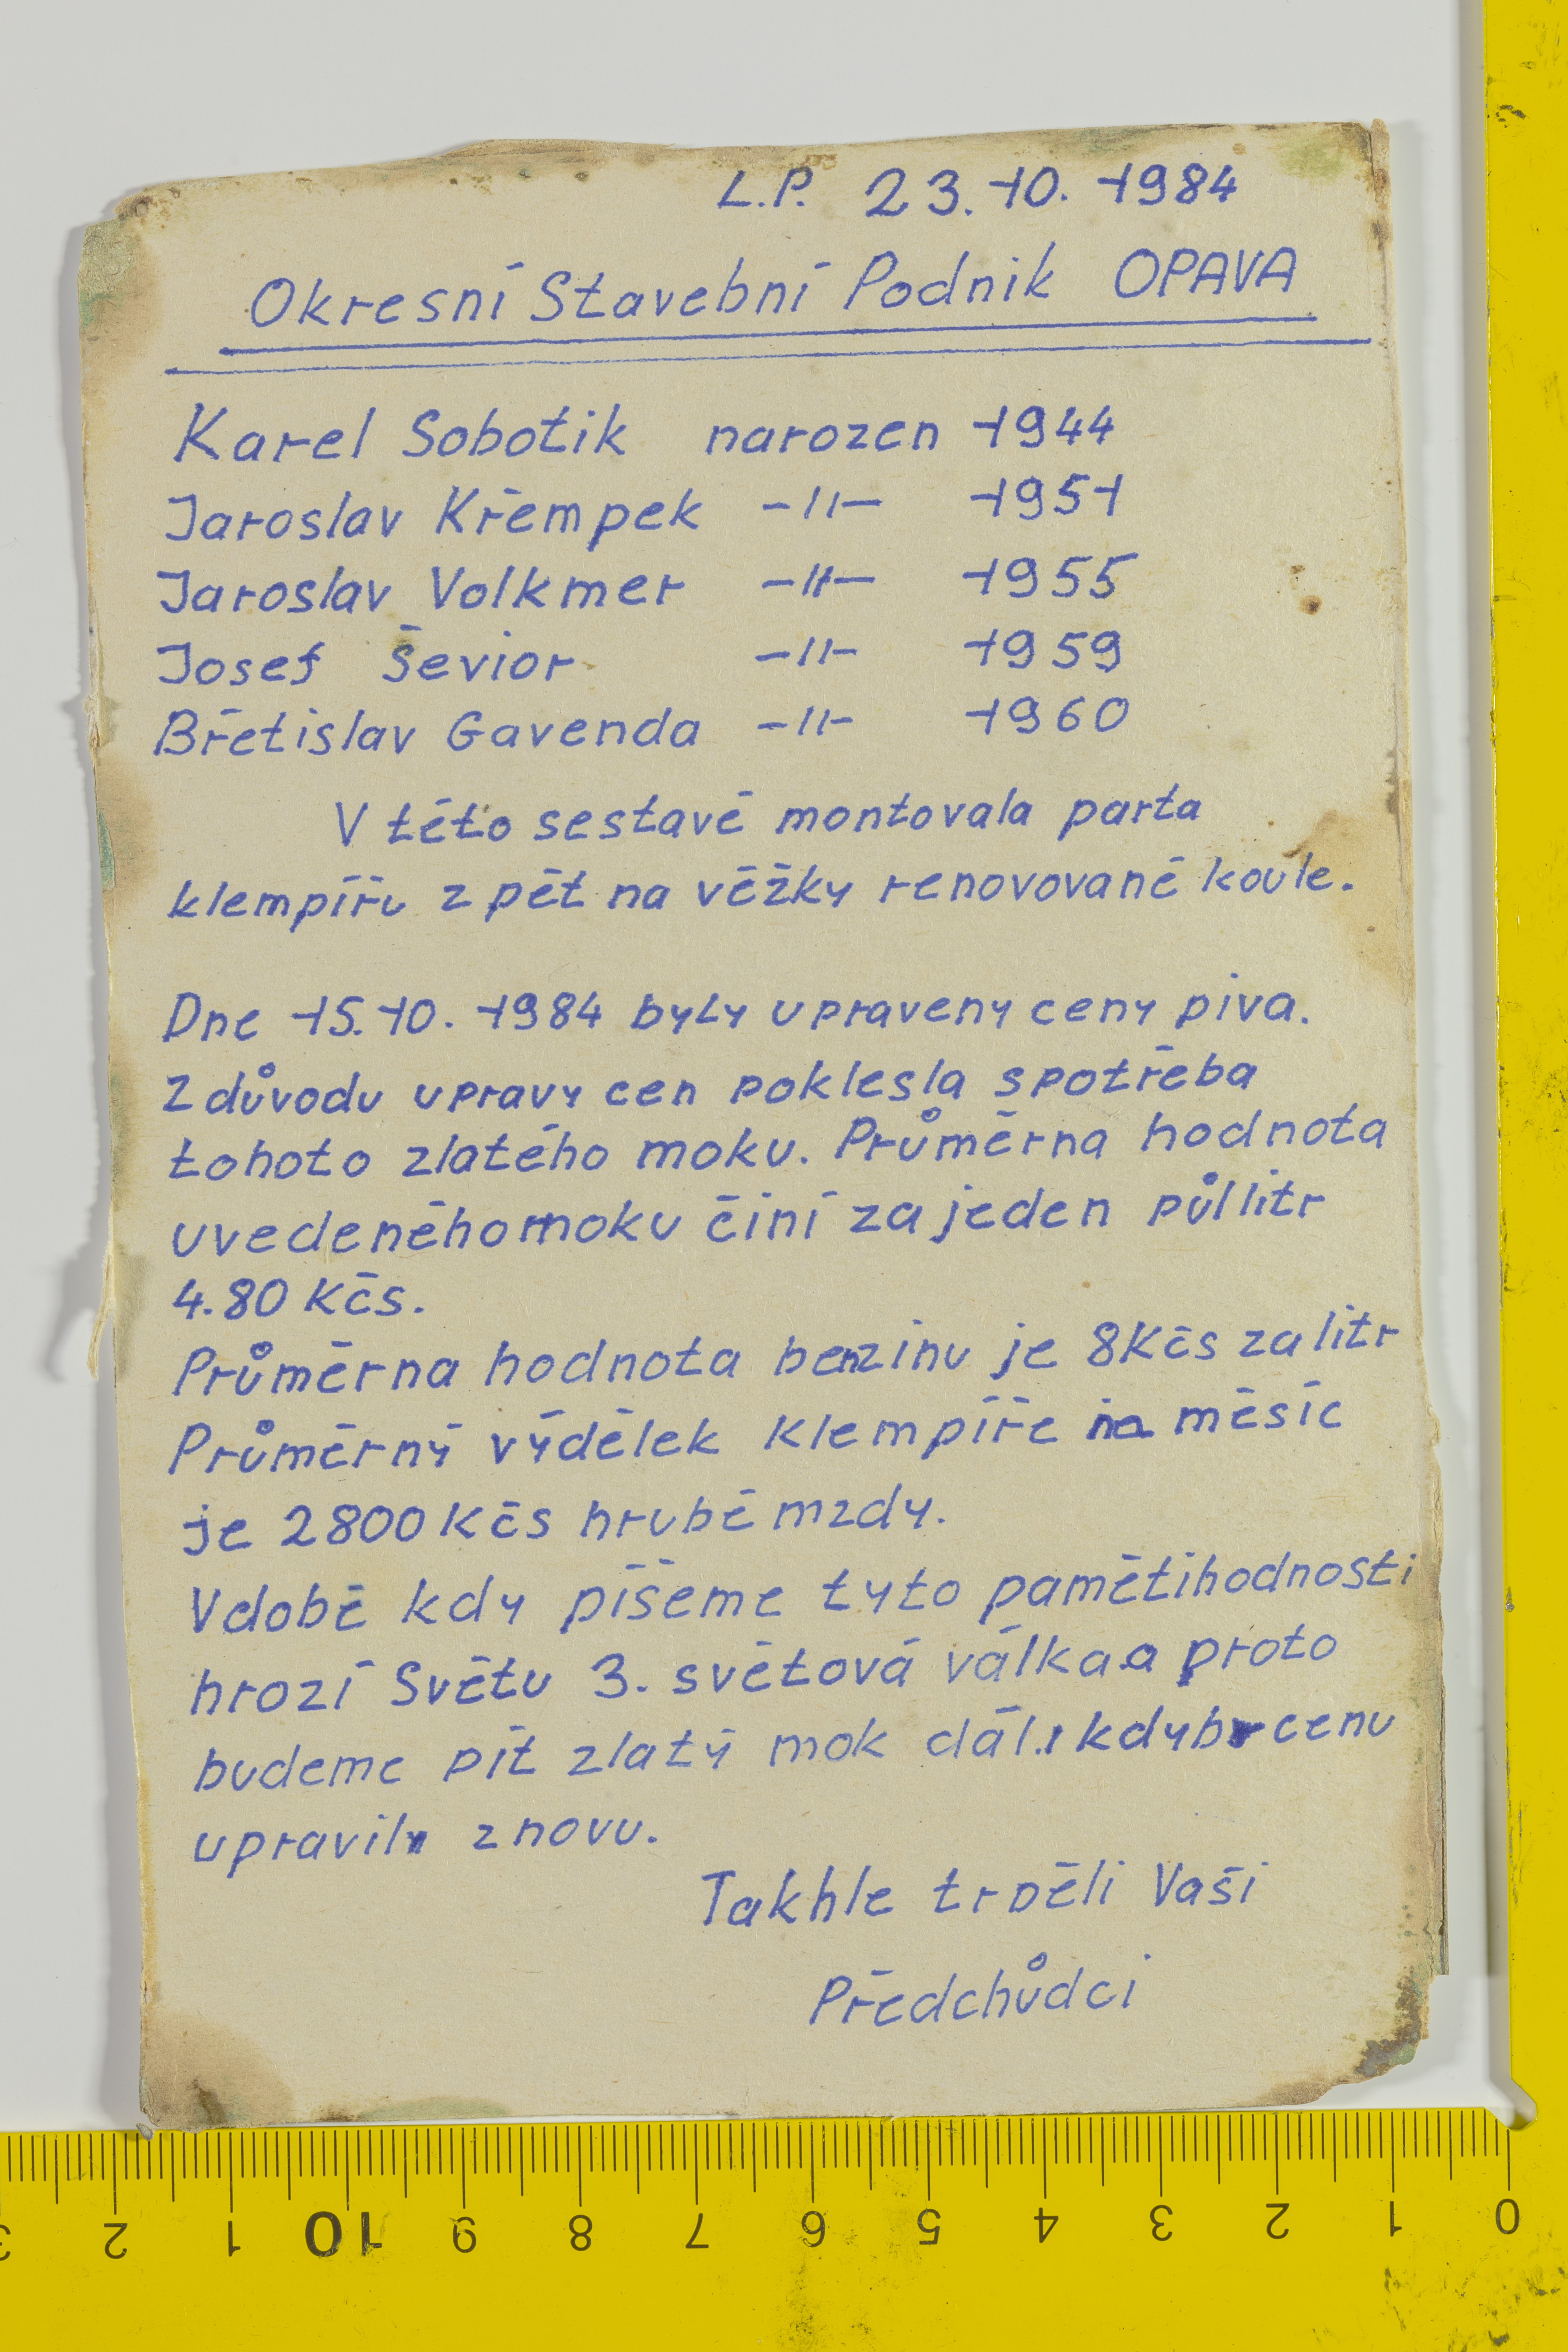 L.P. 23.10.1984
Okresní Stavební Podnik OPAVA
Karel Sobotik narozen 1944
Jaroslav Křempek -//- 1951
Jaroslav Volkmer -//- 1955
Josef Ševior -//- 1959
Břetislav Gavenda -//- 1960
V této sestavě montovala parta
klempířu z pět na věžky renovované koule.
Dne 15.10.1984 byly upraveny ceny piva.
Z důvodu upravy cen poklesla spotřeba
tohoto zlatého moku. Průměrna hodnota
uvedeného moku činí za jeden půl litr
4.80 Kčs.
Průměrna hodnota benzinu je 8Kčs za litr
Průměrný výdělek klempíře na měsíc
je 2800 Kčs hrubé mzdy.
V době kdy píšeme tyto pamětihodnosti
hrozí Světu 3. světová válka a proto
budeme pít zlatý mok dál.i kdyby cenu
upravily znovu.
Takhle trpěli Vaši
Předchůdci
0 1 2 3 4 5 6 7 8 9 10 1 2 3